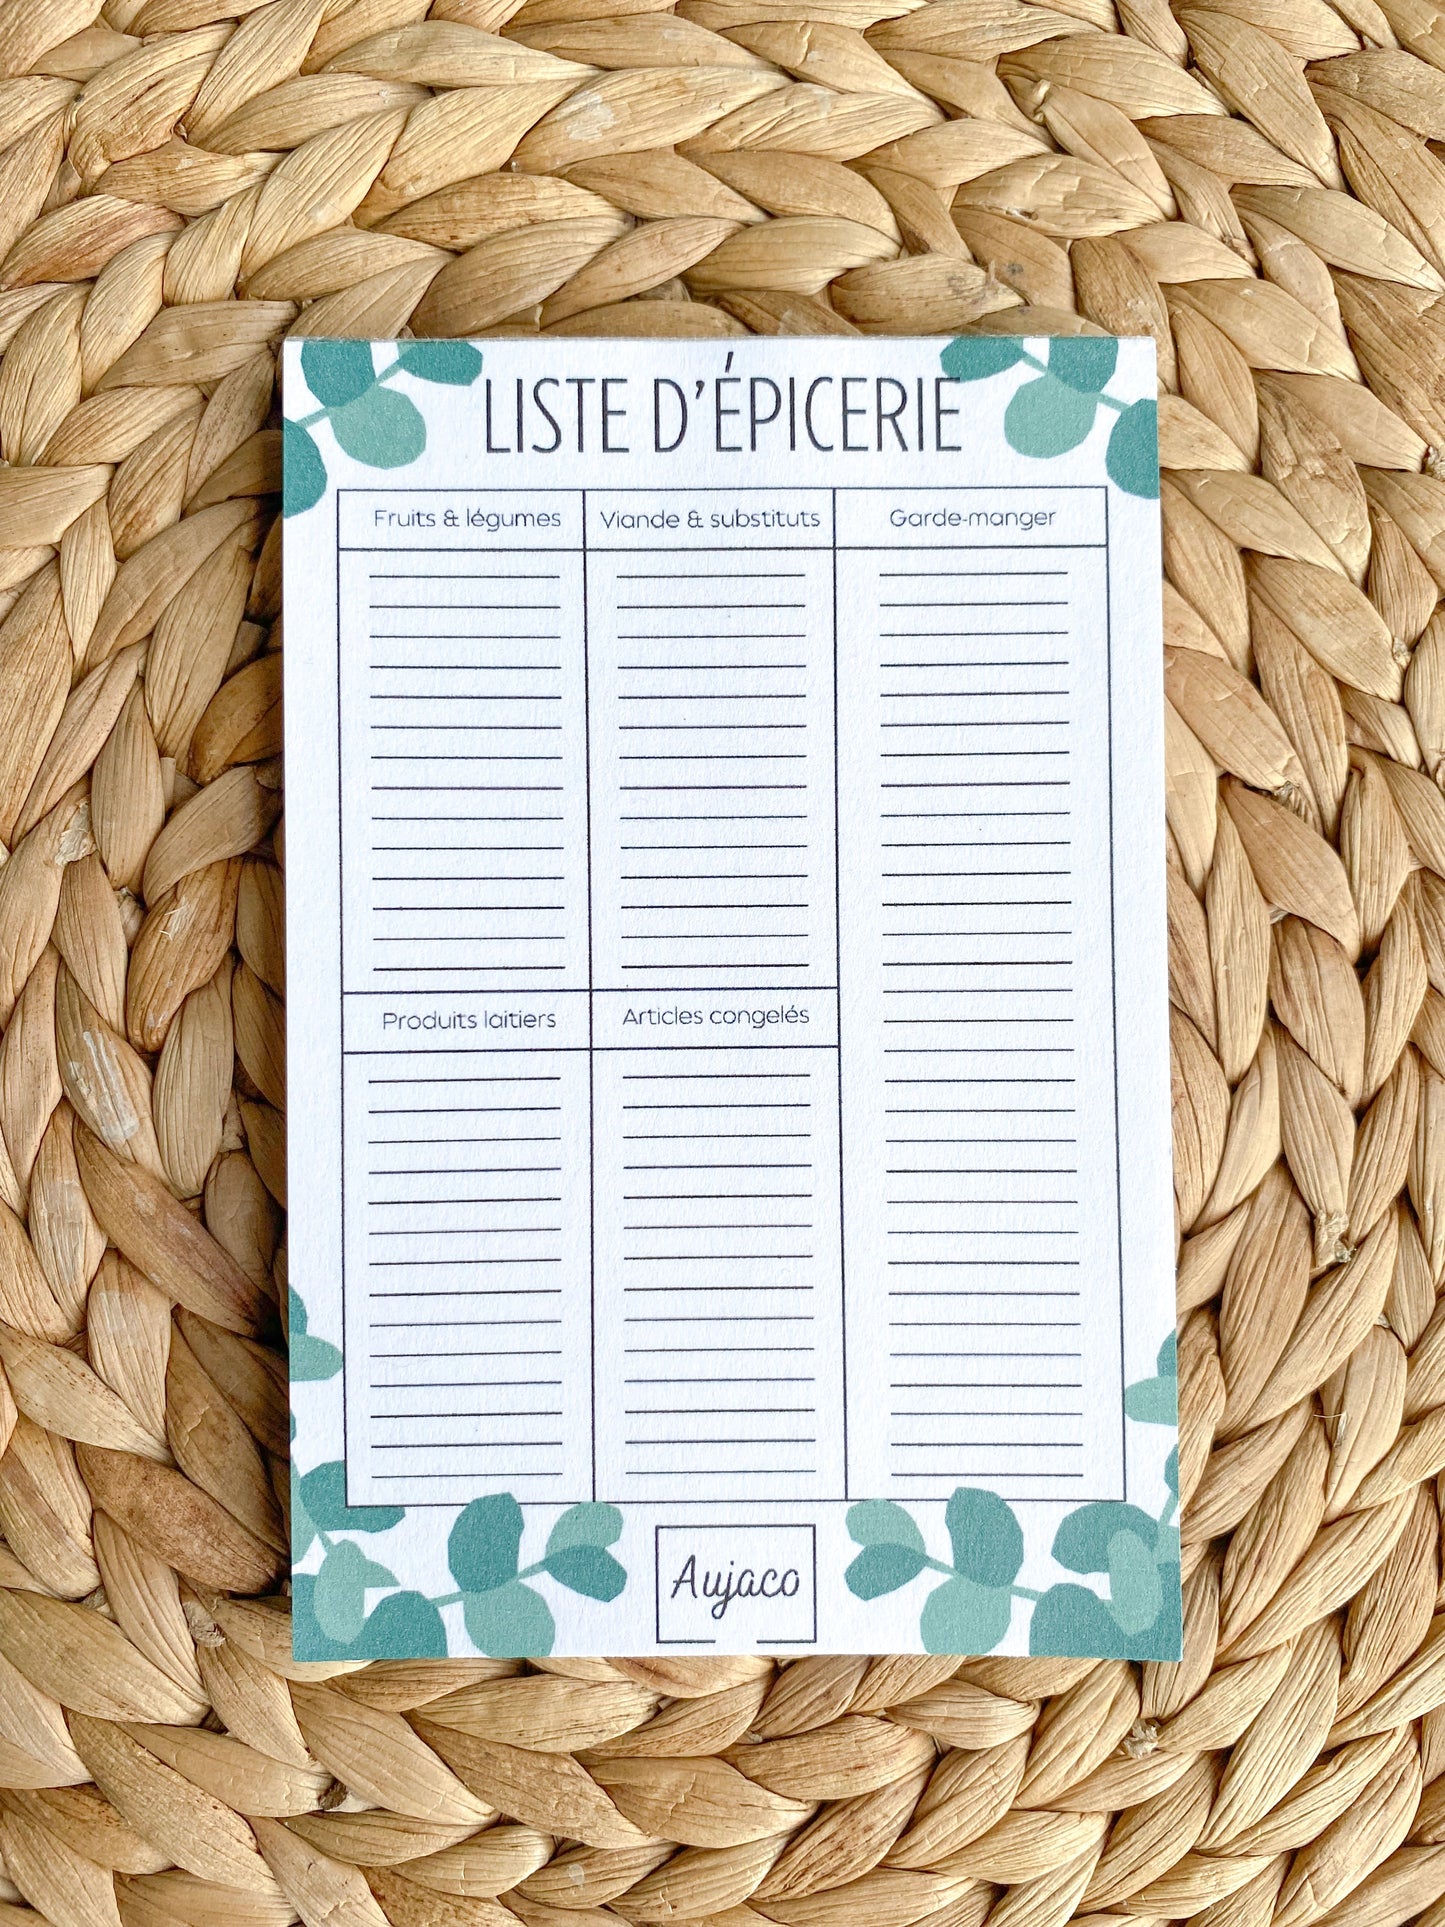 LISTE D'ÉPICERIE
Fruits & légumes
Viande & substituts
Garde-manger
Produits laitiers
Articles congelés
Aujaco